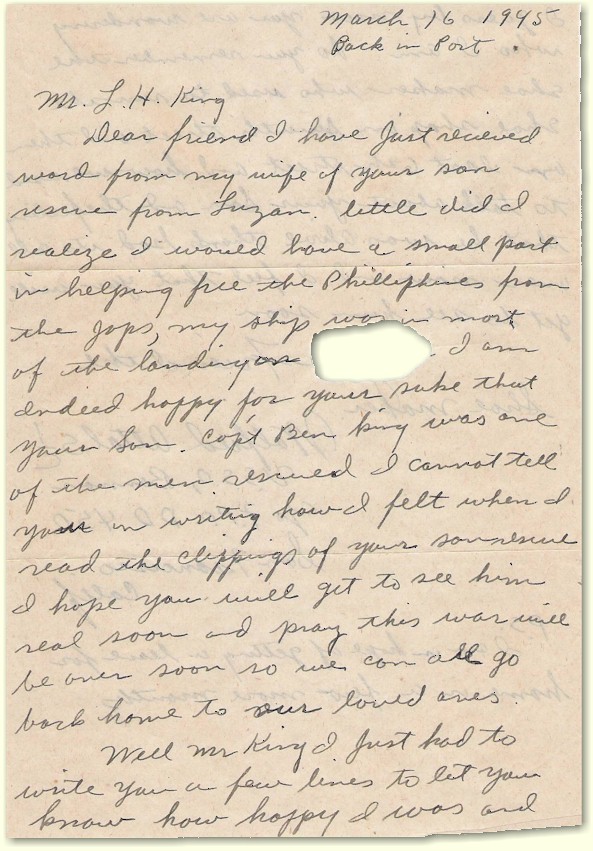 March 16 1945
Back in Port.
Mr. L. H. King
Dear friend I have Just recieved
word from my wife of your son
rescue from Luzan. little did I
realize I would have a small part
in helping free the Philliphines from
the Japs, my ship was in most
of the landing on I am
indeed happy for your sake that
your Son. Capt Ben King was one
of the men rescued I cannot tell
you in writing how I felt when I
read the clippings of your son rescue
I hope you will get to see him
real soon and pray this war will
be over soon so we can all go
back home to our loved ones.
Well Mr King I Just had to
write you a few lines to let you
know how happy I was and